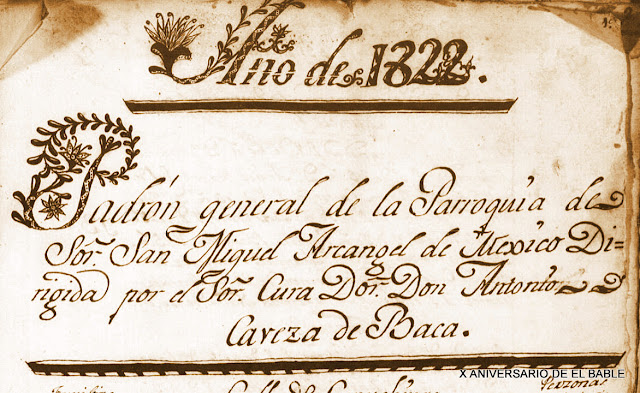 Año de 1822.
Padrón general de la Parroquia de
Sor. San Miguel Arcangel de Mexico Di=
rigida por el Sor. Cura Dor. Don Antonio
Caveza de Baca.
X ANIVERSARIO DE EL BABLE